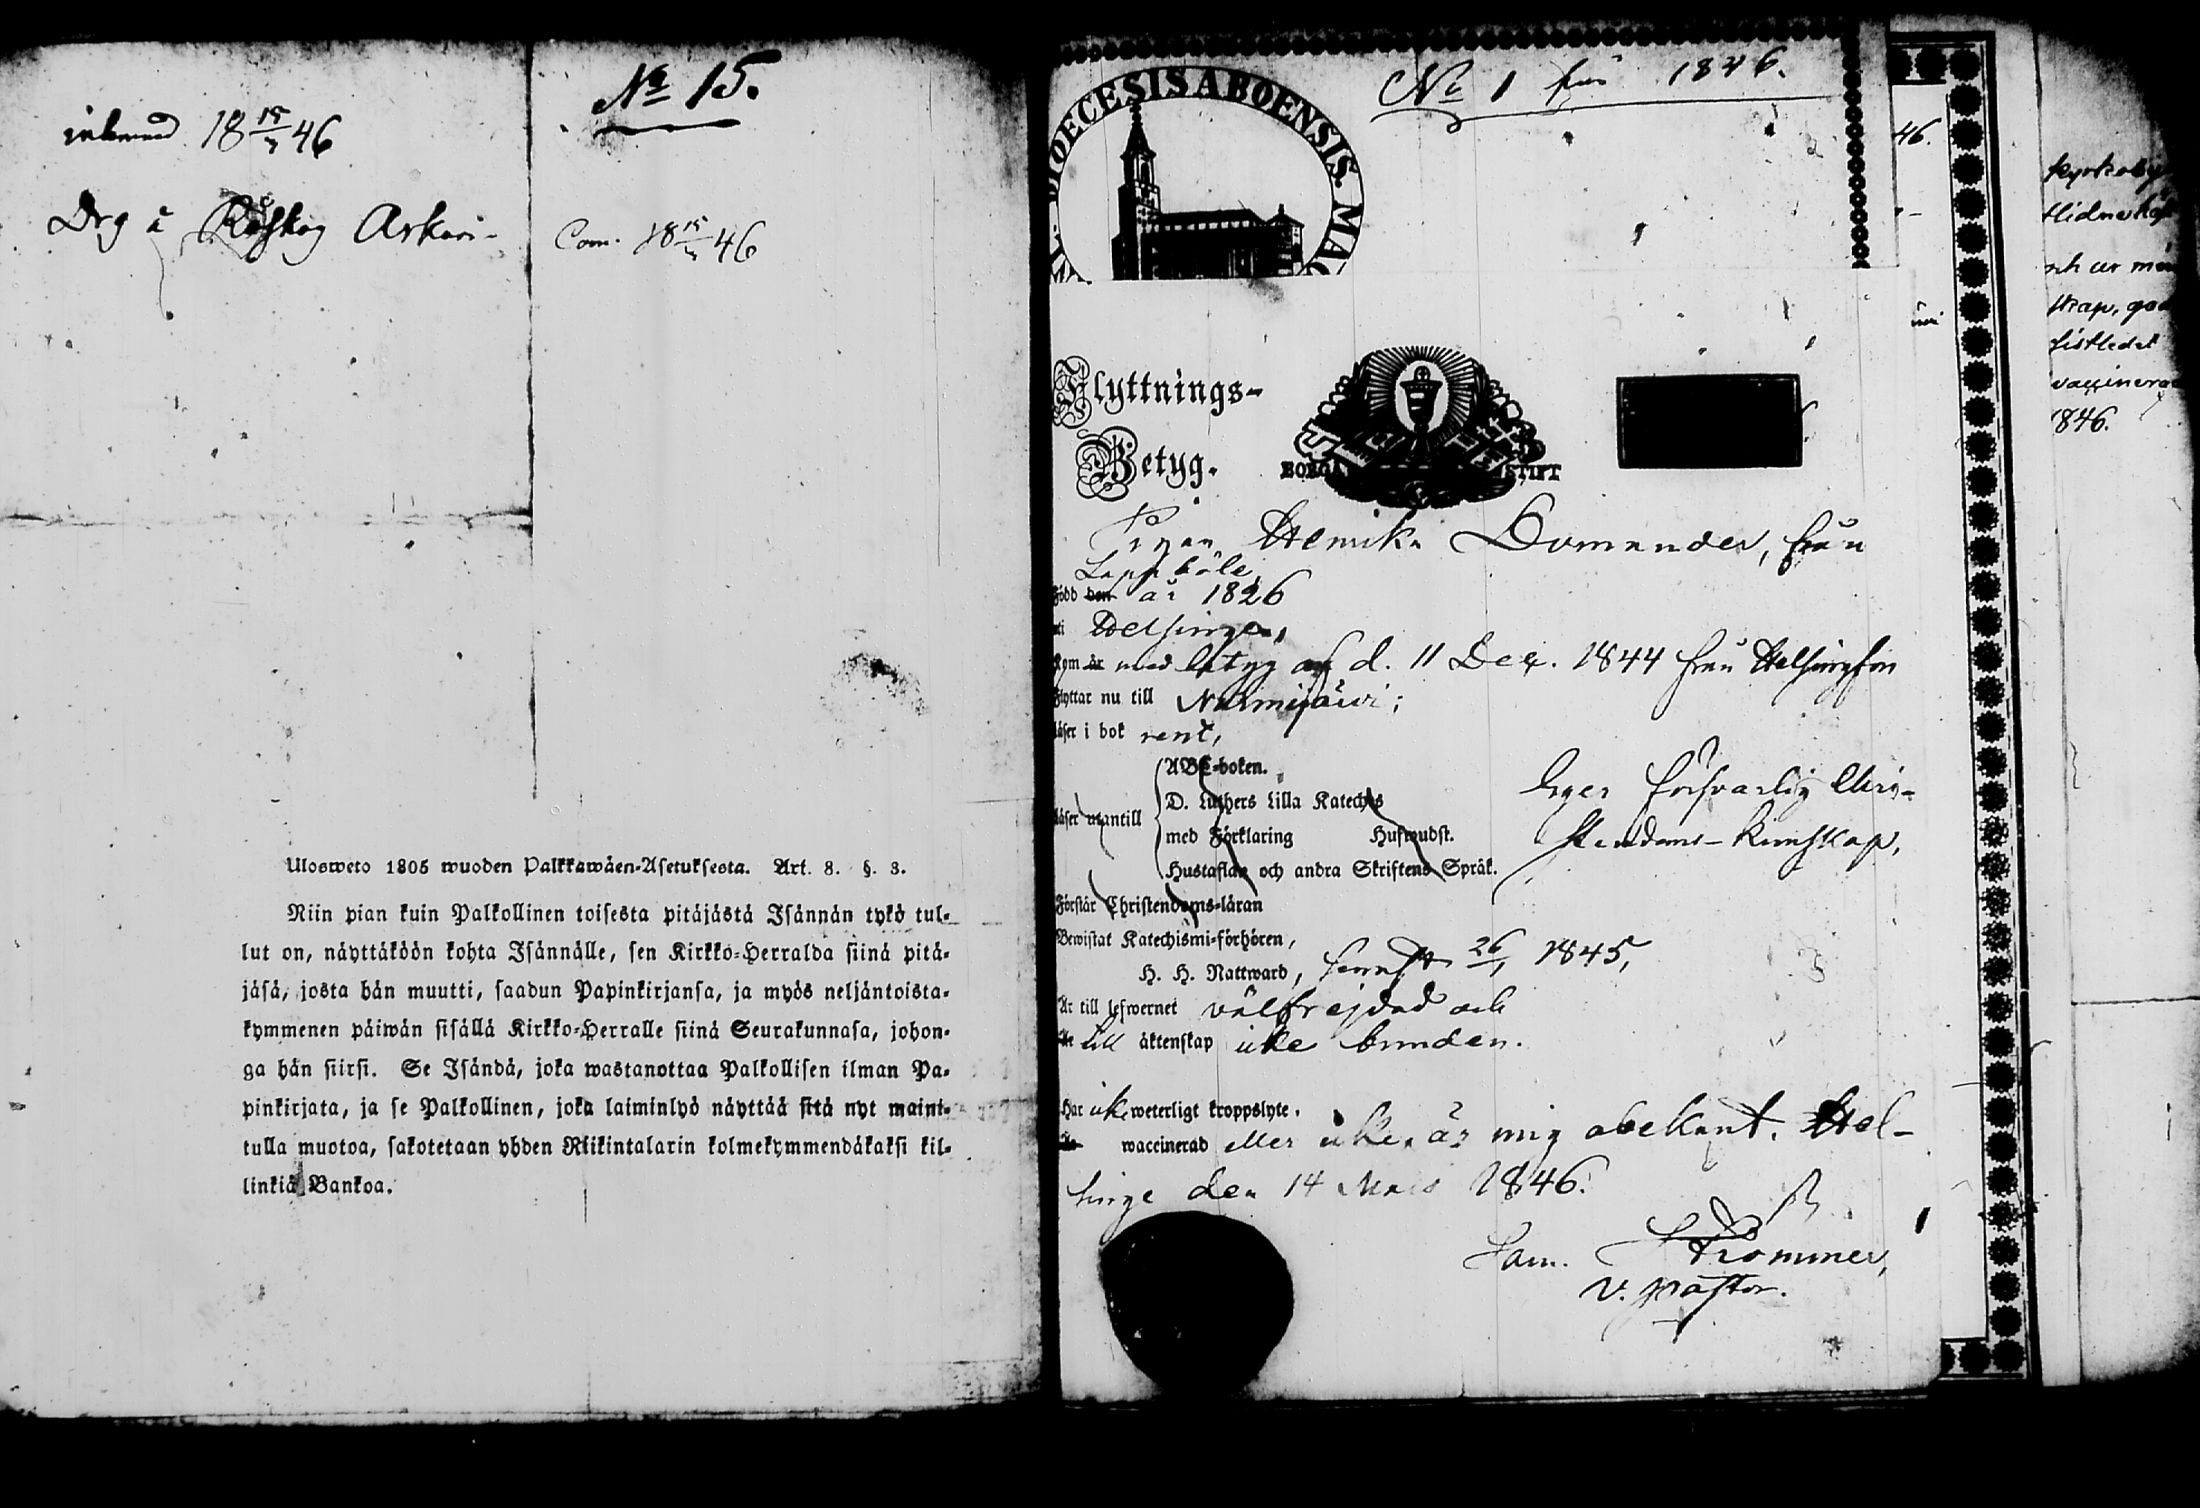 No 15.
inkommd 18 15/3 46
Drg å Röskog Askeri-
Com. 18 15/3 46
Ulosweto 1805 wuoden Palkkawäen-Asetuksesta. Art. 8. §. 3.
Niin pian kuin Palkollinen toisesta pitäjästä Isännän tykö tul-
lut on, näyttäköön kohta Isännälle, sen Kirkko-Herralda siinä pitä-
jäsä, josta hän muutti, saadun Papinkirjansa, ja myös neljäntoista-
kymmenen päiwän sisällä Kirkko-Herralle siinä Seurakunnasa, johon-
ga hän siirsi. Se Isändä, joka wastanottaa Palkollisen ilman Pa-
pinkirjata, ja se Palkollinen, joka laiminlyö näyttää sitä nyt maini-
tulla muotoa, sakotetaan yhden Riikintalarin kolmekymmendäkaksi kil-
linkiä Bankoa.
DIOECESIS ABOENSIS. MAG
No 1 för 1846.
Flyttnings-
Betyg.
BORGÅ STIFT
Pigan Henrika Domander, från
Lappböle
Född den år 1826
i Helsinge,
Kom år med betyg af d. 11 Dec. 1844 från Helsingfors
Flyttar nu till Nurmijärvi;
Läser i bok rent,
ABC-boken.
D. Luthers Lilla Kateches
Läser utantill
med Förklaring Hufwudst.
Hustaflan och andra Skriftens Språk.
Eger försvarlig Chri-
stendoms-kunskap,
Förstår Christendoms-läran
Bewistat Katechismi-förhören,
H. H. Nattward, senast 26/ 1845,
Är till lefwernet välfrejdad och
till äktenskap icke bunden.
Har icke weterligt kroppslyte.
waccinerad eller icke, är mig obekant. Hel-
singe den 14 Mars 1846.
Sam. Strömmer,
V. pastor.
46.
kyrkoby
1846.